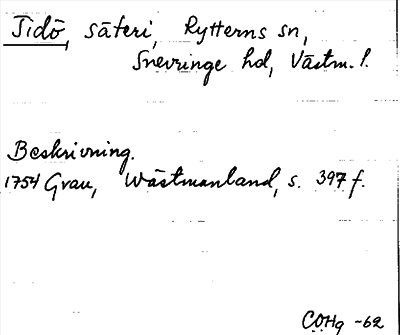 Tidö, säteri, Rytterns sn,
Snevringe hd, Västm. l.
Beskrivning.
1754 Grau, Wästmanland, s. 397 f.
COHg -62